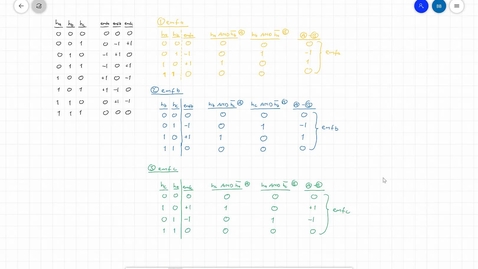 ha hb hc emfa emfb emfc
0 0 0 0 0 0
0 0 1 0 -1 +1
0 1 0 -1 +1 0
0 1 1 -1 0 +1
1 0 0 +1 0 -1
1 0 1 +1 -1 0
1 1 0 0 +1 -1
1 1 1 0 0 0
① emfa
emfa AND Ⓐ AND Ⓑ Ⓐ-Ⓑ
0 0 0 0 0 0
0 1 -1 0 1 -1
1 0 +1 1 0 1
1 1 0 0 0 0
emfa
② emfb
emfb AND Ⓐ AND Ⓑ Ⓐ-Ⓑ
0 0 0 0 0 0
0 1 -1 0 1 -1
1 0 +1 1 0 1
1 1 0 0 0 0
emfb
③ emfc
emfc AND Ⓐ AND Ⓑ Ⓐ-Ⓑ
0 0 0 0 0 0
1 0 +1 1 0 +1
0 1 -1 0 1 -1
1 1 0 0 0 0
emfc